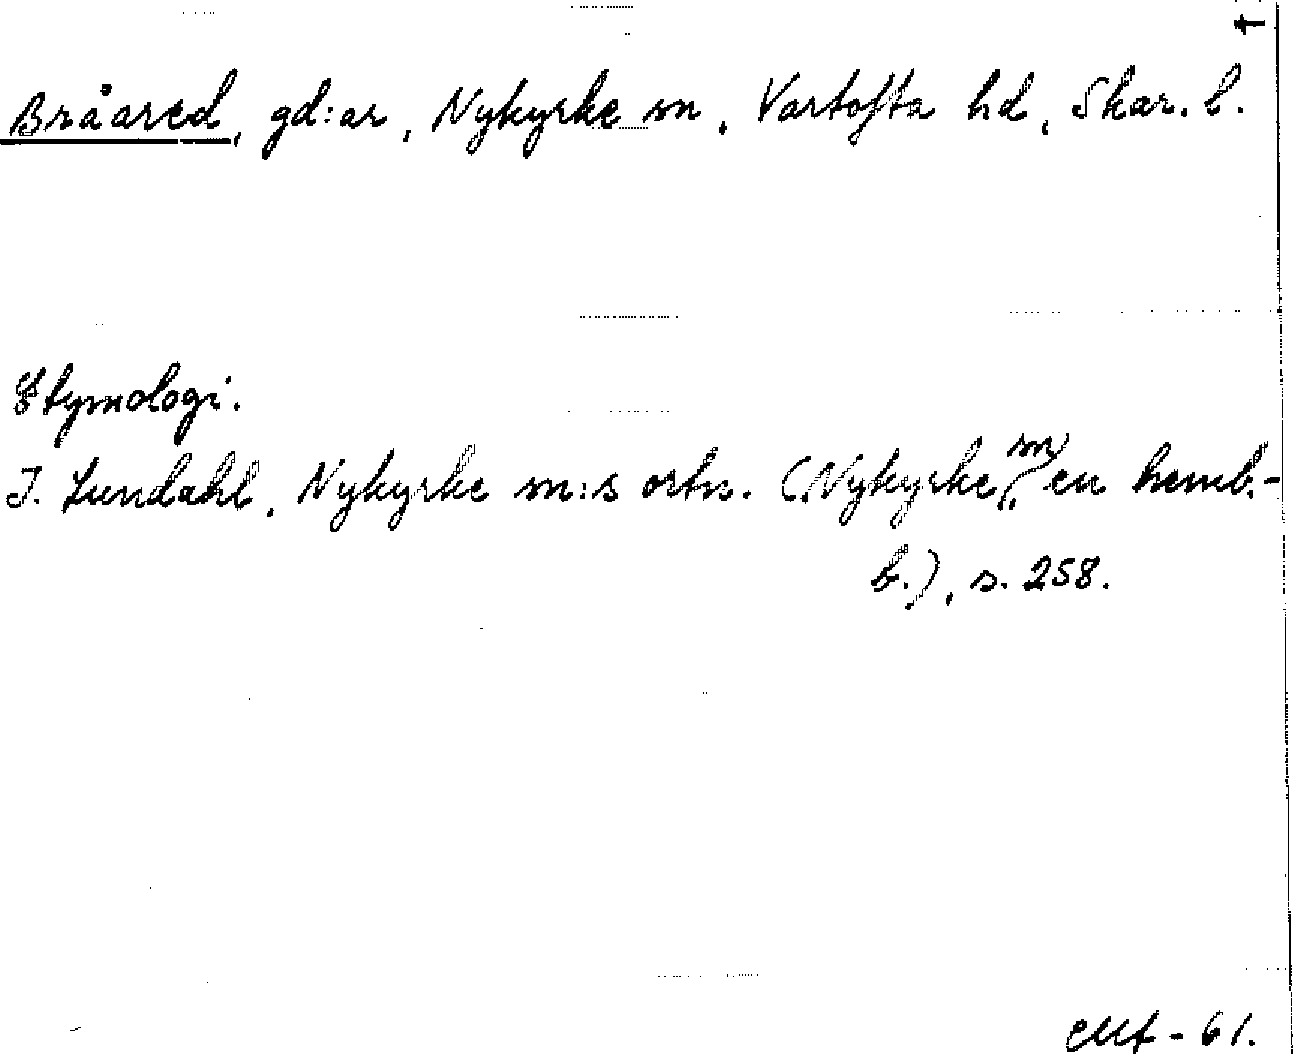 t
Bråared, gd:ar, Nykyrke sn, Vartofta hd, Skar. l.
Etymologi.
I. Lundahl, Nykyrke sn:s ortn. (Nykyrke sn, en hemb.-
b.), s. 258.
-61.